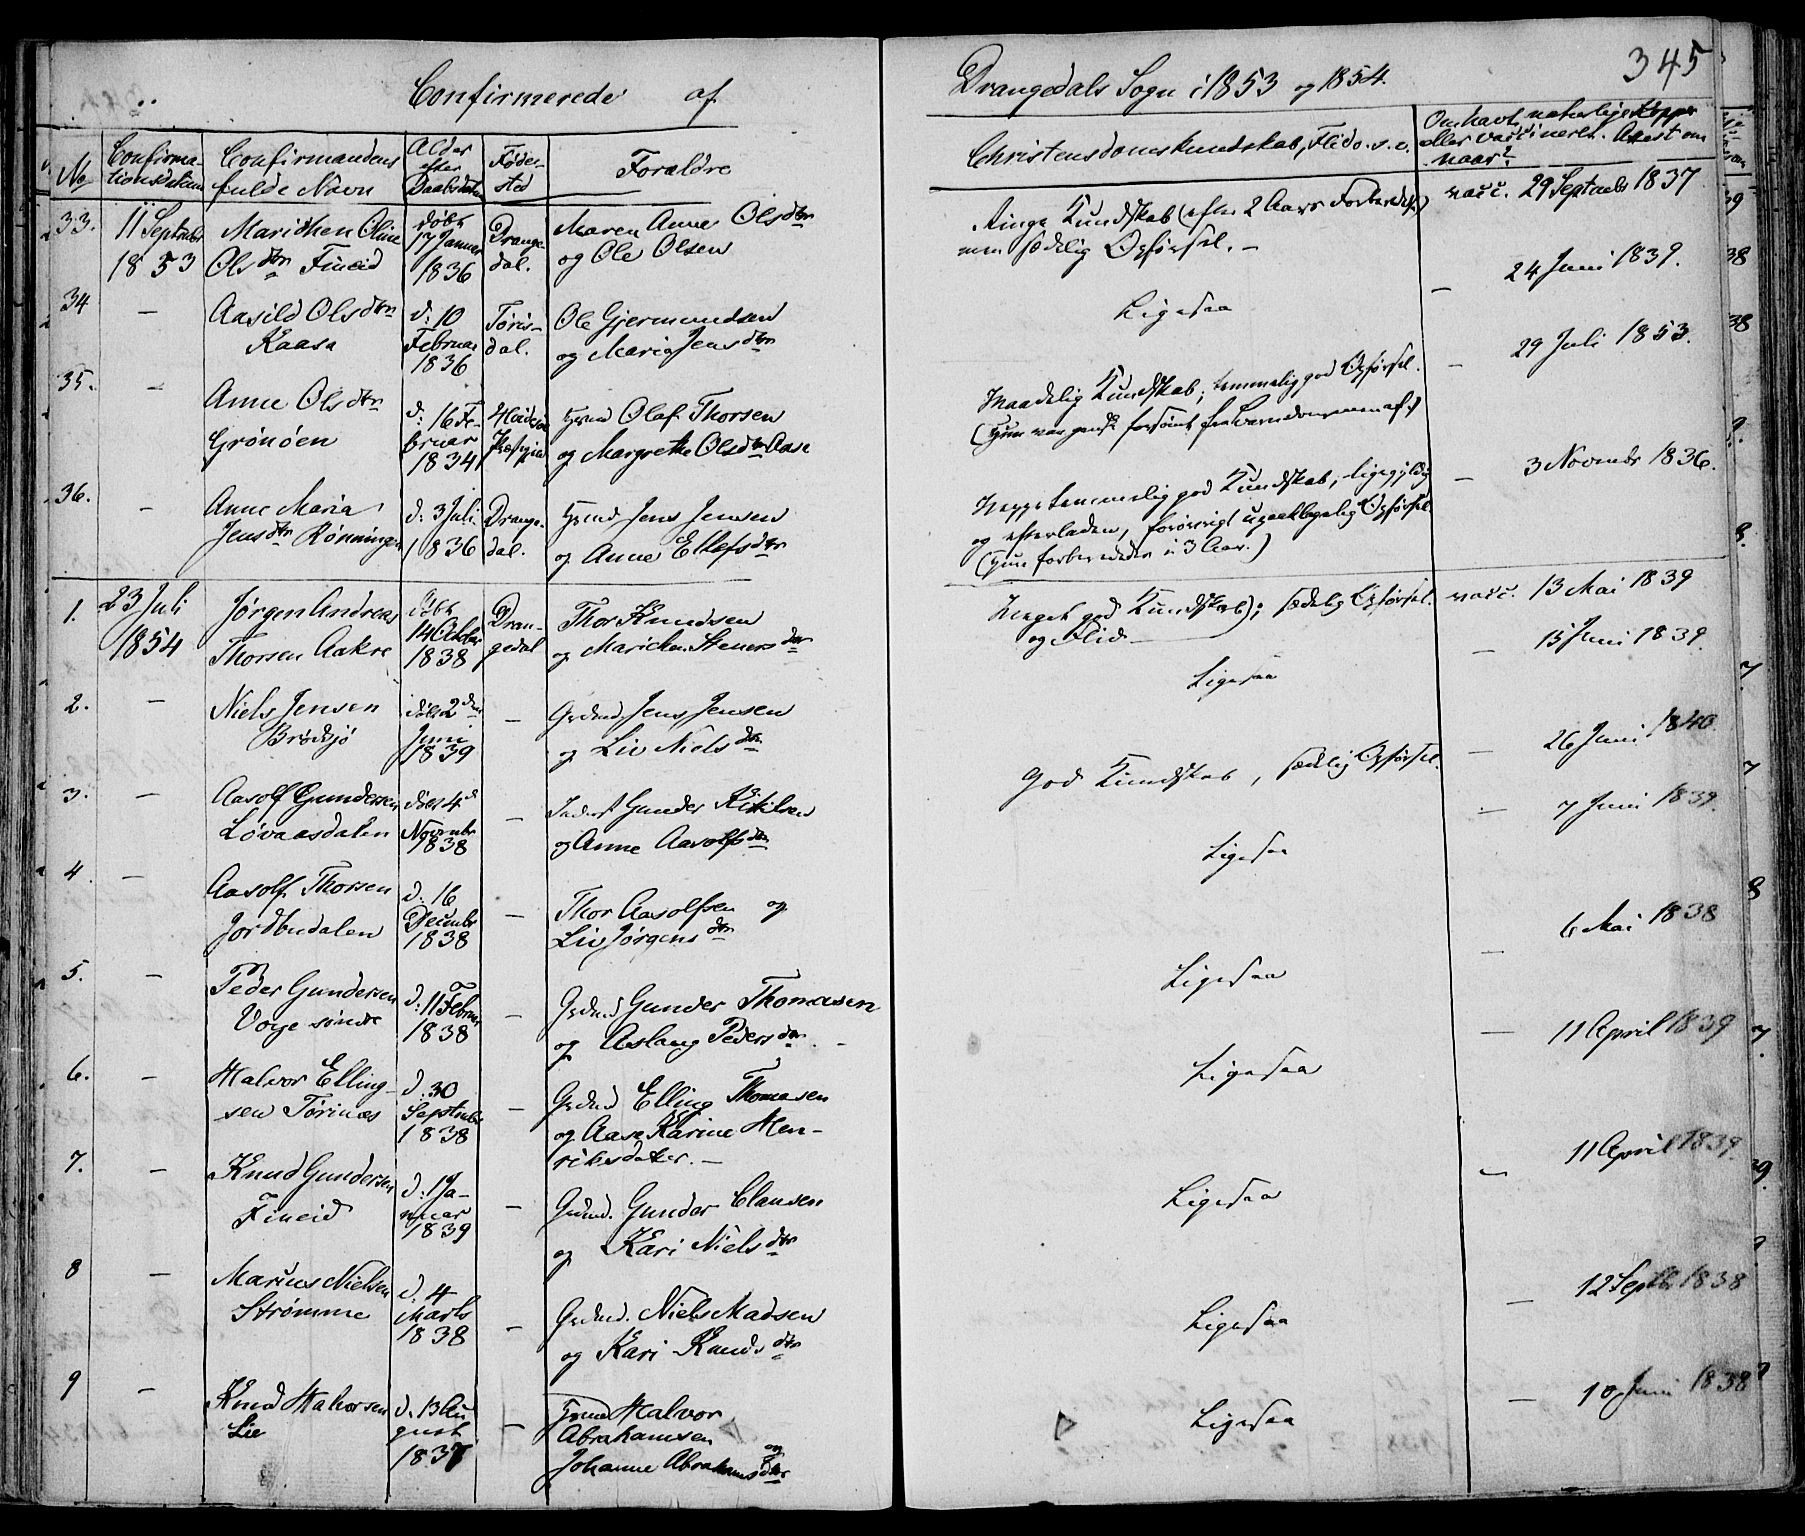 Confirmerede af
Drangedals Sogn i 1853 og 1854.
345
No
Confirma-
tionsdatum
Confirmandens
fulde Navn
Alder
efter
Daabsdatum
Føde-
sted
Forældre
Christendomskundskab, Flid o. s. v.
Om havt naturlige Kopper
eller vaccineret. Attest om
naar?
33.
11 Septembr
1853
Marichen Oline
Olsdtr Fineid
døbt
17 Januar
1836
Drange-
dal.
Maren Anne Olsdtr
og Ole Olsen
Ringe Kundskab (efter 2 Aars Forberedelse)
men sædelig Opførsel. -
vacc. 29 Septembr 1837
34
-
Aasild Olsdtr
Kaasa
d: 10
Februar
1836
Tøris-
dal.
Ole Gjermundsen
og Maria Jensdtr
Ligesaa
- 24 Juni 1839.
35.
-
Anne Olsdtr
Grønøen
d: 16 Fe-
bruar
1834
Olaf Thorsen
og Margrethe Olsdtr Aase
Maadelig Kundskab, temmelig god Opførsel.
(Hun var gansk forsømt fra Barndommen af)
- 29 Juli 1853.
36.
-
Anne Maria
Jensdtr Rønningen
d: 3 Juli
1836
Drange-
dal.
Jens Jensen
og Anne Ellefsdtr
Neppe temmelig god Kundskab, ligegyldig
og efterladen, forøvrigt upaaklagelig Opførsel
(Hun forberededes i 3 Aar.)
- 3 Novembr 1836.
1.
23 Juli
1854
Jørgen Andreas
Thorsen Aakre
døbt
14 Oktbr
1838
Dran-
gedal
Thor Knudsen
og Marichen Stenersdtr
Meget god Kundskab; sædelig Opførsel.
og Flid -
vacc. 13 Mai 1839
2.
-
Niels Jensen
Brødsjø
døbt 2den
Juni
1839
-
Grdmd. Jens Jensen
og Liv Nielsdtr
Ligesaa
- 15 Juni 1839.
3.
-
Aasolf Gundersen
Løvaasdalen
døbt 4d
Novembr
1838
-
Inderst Gunder Kittilsen
og Anne Aasolfsdtr
God Kundskab, sædelig Opførsel.
- 26 Juni 1840.
4.
-
Aasolf Thorsen
Jordbudalen
d: 16
Decembr
1838
-
Thor Aasolfsen og
Liv Jørgensdtr
Ligesaa
- 7 Juni 1839.
5.
-
Peder Gundersen
Voje søndre
d: 11 Februar
1838
-
Grdmd Gunder Thomasen
og Aslaug Pedersdtr. -
Ligesaa
- 6 Mai 1838
6.
-
Halvor Elling-
sen Tørisnæs
d. 30
Septembr
1838
-
Grdmd Elling Thomasen
og Aase Karine Hen-
riksdatter. -
Ligesaa
- 11 April 1839
7.
-
Knud Gundersen
Fineid
d: 1 Ja-
nuar
1839
-
Grdmd. Gunder Clausen
og Kari Nielsdtr
Ligesaa
- 11 April 1839.
8
-
Marius Nielsen
Strømme
d. 4
Marts
1838
-
Grdmd. Niels Madsen
og Kari Knudsdtr
Ligesaa
- 12 Septbr 1838
9
-
Knud Halvorsen
Lie
d. 13 Au
gust
1837
-
Halvor
Abrahamsen
og
Johanne Abrahamsdtr
Ligesaa
- 10 Juni 1838